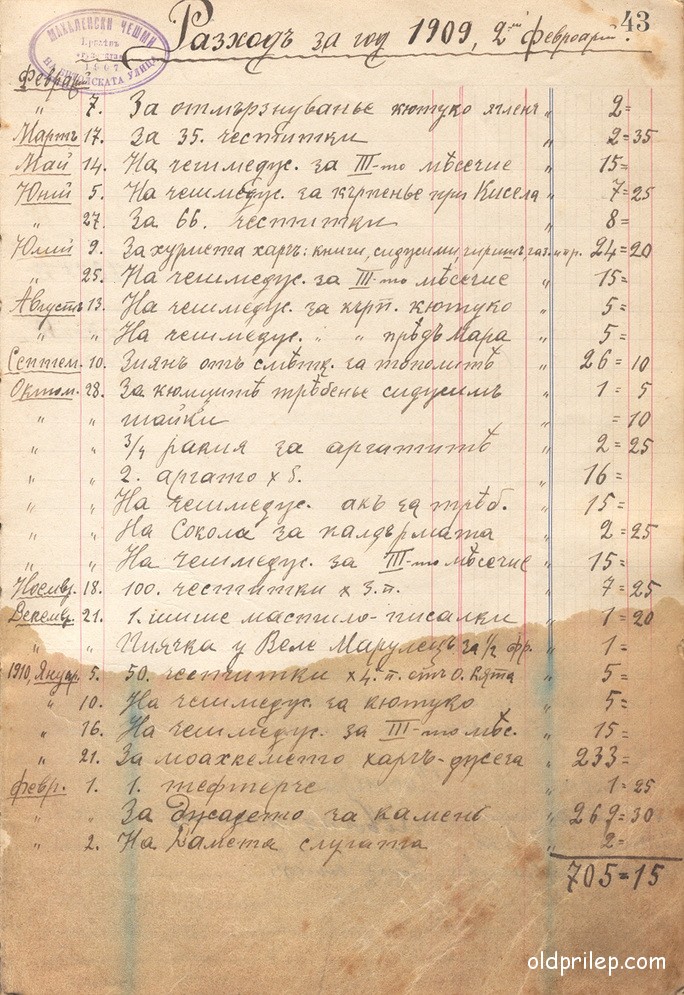 43
МАХАЛЕНСКИ ЧЕШМИ
1907
Разходъ за год 1909, 2ий Февроарий.
Феврарий
" 7. За отмързнуванье кютуко ягленъ " 2=
Мартъ 17. За 35. честитки " 2=35
Май 14. На чешмеџус. за III-то мѣсечие " 15=
Юний 5. На чешмеџус. за кърпенье при Кисела " 7=25
" 27. За 66. честитки " 8=
Юлий 9. За хуриета харчъ: книги, сиџусими, гиришъ газ. и пр. 24=20
" 25. На чешмеџус. за III-то мѣсечие " 15=
Августъ 13. На чешмеџус. за кърп. кютуко " 5=
" " На чешмеџус. " " прѣдъ Мара " 5=
Септем. 10. Зиянъ отъ смѣтк. за тополитѣ " 26=10
Октом. 28. За кюнцитѣ трѣбенье сиџусимъ " 1=5
" " шайки " =10
" " 3/4 ракия за аргатитѣ " 2=25
" " 2. аргато x 8. " 16=
" " На чешмеџус. акъ за трѣб. " 15=
" " На Сокола за калдърмата " 2=25
" " На чешмеџус. за III-то мѣсечие " 15=
Ноемвр. 18. 100. честитки x 3. п. " 7=25
Декемвр. 21. 1. шише мастило-писалки " 1=20
" " Пиячка у Веле Марулецъ за 1/2 фр. " 1=
1910, Януар. 5. 50. честитки x 4. п. отъ О. Кята " 5=
" 10. На чешмеџус. за кютуко " 5=
" 16. На чешмеџус. за III-то мѣс. " 15=
" 21. За моахкемето харчъ- " 233=
Февр. 1. 1. тефтерче " 1=25
" " За Джадето за камень " 262=30
" 2. На Дамета слугата " 2=
705=15
oldprilep.com